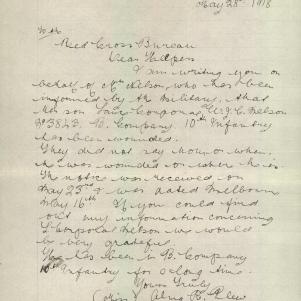 May 28th 1918
To the
Red Cross Bureau
Dear Helpers
I am writing you on
behalf of Mrs Nelson, who has been
informed by the Military, that
her son Lance Corporal W. J. Nelson
No 3843 B. Company 10th Infantry
has been wounded.
They did not say how or when
he was wounded or where he is
The notice was received on
May 23rd & was dated Melbourne
May 16th If you could find
out any information concerning
L. Corporal Nelson we would
be very grateful.
He has been in B. Company
10th Infantry for a long time.
Yours Truly
(Miss) B.